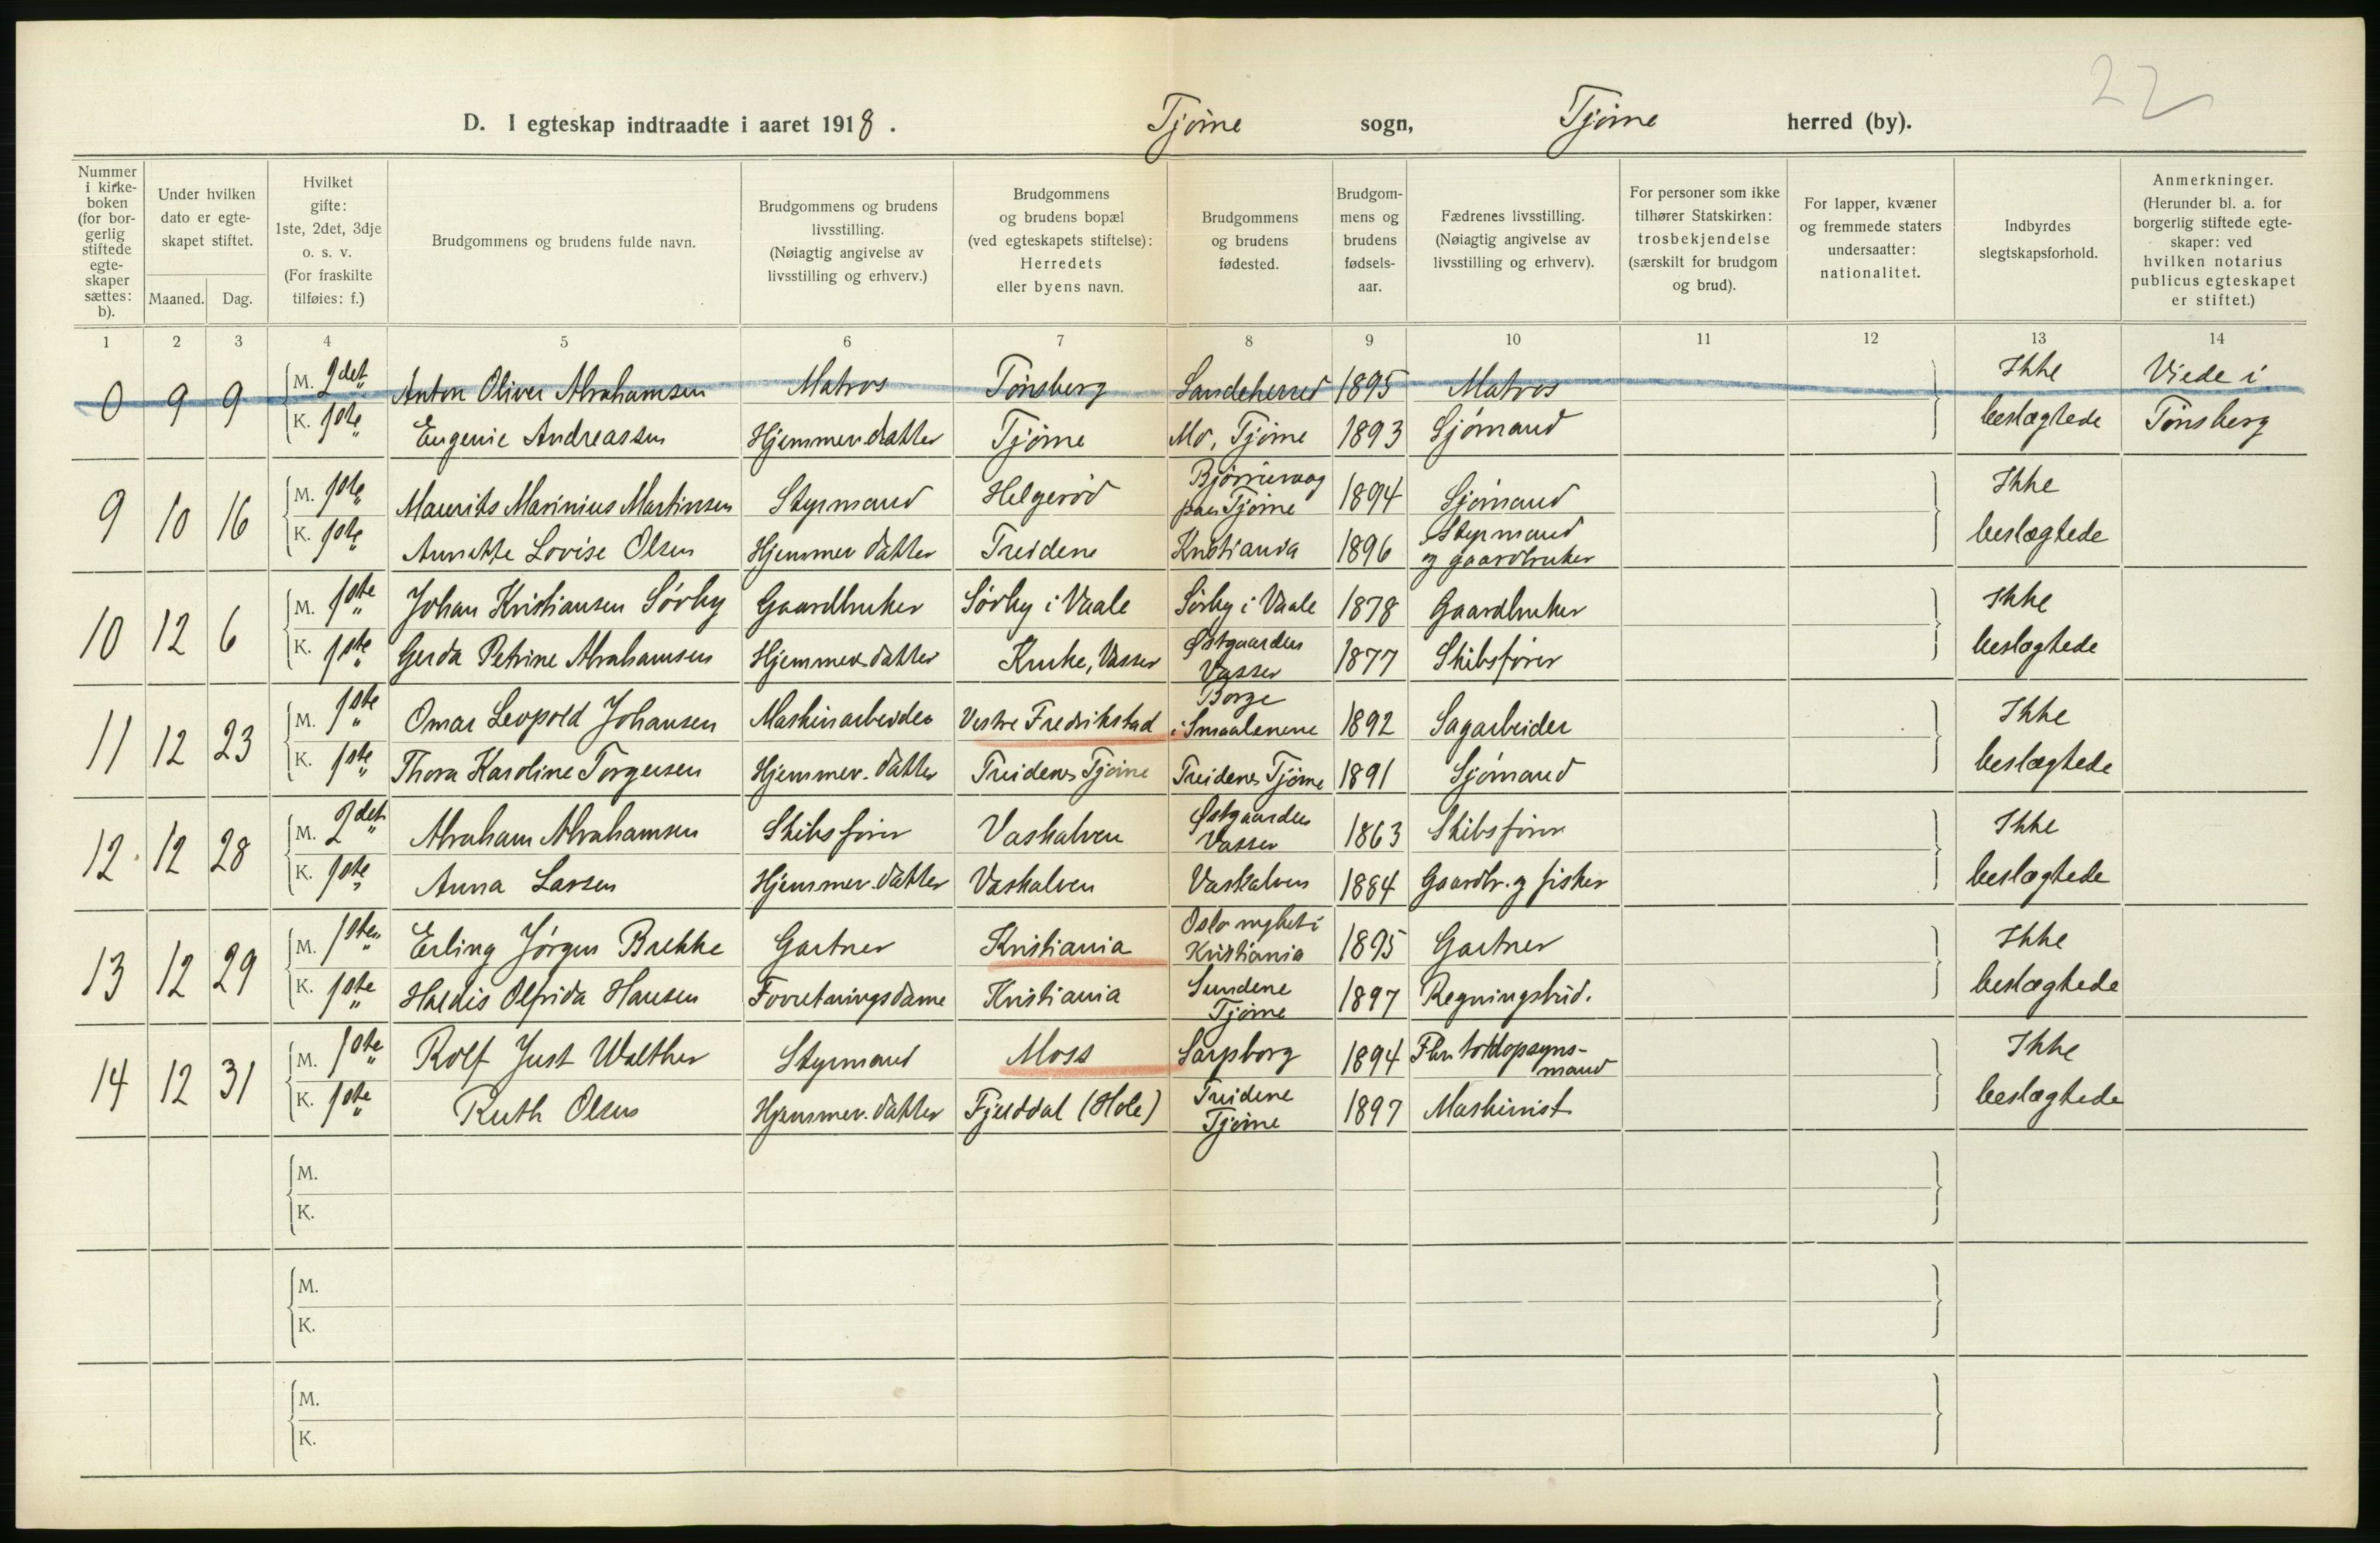 22
D. I egteskap indtraadte i aaret 1918. Tjøme sogn, Tjøme herred (by).
Nummer i kirke-boken (for bor-gerlig stiftede egte-skaper sættes: b).
Under hvilken dato er egte-skapet stiftet.
Maaned. Dag.
Hvilket gifte: 1ste, 2det, 3dje o. s. v. (For fraskilte tilføies: f.)
Brudgommens og brudens fulde navn.
Brudgommens og brudens livsstilling. (Nøiagtig angivelse av livsstilling og erhverv.)
Brudgommens og brudens bopæl (ved egteskapets stiftelse): Herredets eller byens navn.
Brudgommens og brudens fødested.
Brudgom-mens og brudens fødsels-aar.
Fædrenes livsstilling. (Nøiagtig angivelse av livsstilling og erhverv).
For personer som ikke tilhører Statskirken: trosbekjendelse (særskilt for brudgom og brud).
For lapper, kvæner og fremmede staters undersaatter: nationalitet.
Indbyrdes slegtskapsforhold.
Anmerkninger. (Herunder bl. a. for borgerlig stiftede egte-skaper: ved hvilken notarius publicus egteskapet er stiftet.)
1 2 3 4 5 6 7 8 9 10 11 12 13 14
0 9 9 M. 2det Anton Oliver Abrahamsen Matros Tønsberg Sandeherred 1895 Matros Ikke Viede i
K. 1ste Eugenie Andreassen Hjemmev. datter Tjöme Mo, Tjöme 1893 Sjömand beslægtede Tönsberg
9 10 16 M. 1ste Maurits Marinius Martinsen Styrmand Helgeröd Bjørnevaag paa Tjöme 1894 Sjömand Ikke
K. 1ste Annette Lovise Olsen Hjemmev datter Treidene Kristiania 1896 Styrmand og gaardbruker beslægtede
10 12 6 M. 1ste Johan Kristiansen Sörby Gaardbruker Sörby i Vaale Sörby i Vaale 1878 Gaardbruker Ikke
K. 1ste Gerda Petrine Abrahamsen Hjemmev. datter Kruke, Vasser Østgaarden Vasser 1877 Skibsförer beslegtede
11 12 23 M. 1ste Omar Leopold Johansen Maskinarbeider Vestre Fredrikstad Borge i Smaalenene 1892 Sagarbeider Ikke
K. 1ste Thora Karoline Torgersen Hjemmev. datter Treidene, Tjöme Treidene, Tjöme 1891 Sjömand beslægtede
12 12 28 M. 2det Abraham Abrahamsen Skibsförer Vaskalven Østgaarden Vasser 1863 Skibsförer Ikke
K. 1ste Anna Larsen Hjemmev. datter Vaskalven Vaskalven 1884 Gaardbr. og fisker beslægtede
13 12 29 M. 1ste Erling Jörgen Brekke Gartner Kristiania Oslo i Kristiania 1895 Gartner Ikke
K. 1ste Haldis Olfrida Hansen Forretningsdame Kristiania Sundene Tjöme 1897 Regningsbud. beslægtede
14 12 31 M. 1ste Rolf Just Walther Styrmand Moss Sarpborg 1894 toldopsyns-mand Ikke
K. 1ste Ruth Olsen Hjemmev. datter Fjelddal (Hole) Treidene Tjöme 1897 Maskinist beslegtede
M.
K.
M.
K.
M.
K.